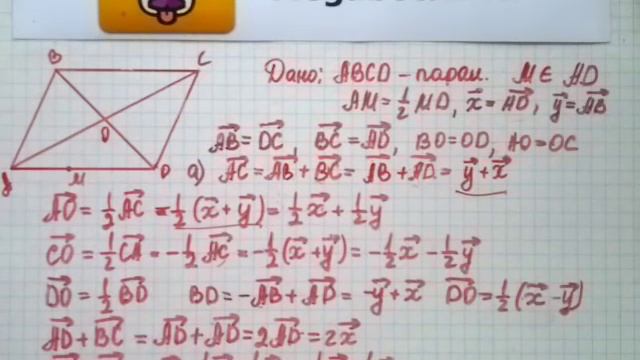 B C
O
A M D
Дано: ABCD – парал. M ∈ AD
AM = 1/2 MD, x⃗ = AD⃗, y⃗ = AB⃗
AB⃗ = DC⃗, BC⃗ = AD⃗, BO = OD, AO = OC
а) AC⃗ = AB⃗ + BC⃗ = AB⃗ + AD⃗ = y⃗ + x⃗
AO⃗ = 1/2 AC⃗ = 1/2 (x⃗ + y⃗) = 1/2 x⃗ + 1/2 y⃗
CO⃗ = 1/2 CA⃗ = -1/2 AC⃗ = -1/2 (x⃗ + y⃗) = -1/2 x⃗ - 1/2 y⃗
DO⃗ = 1/2 BD⃗ BD = -AB⃗ + AD⃗ = -y⃗ + x⃗ DO⃗ = 1/2 (x⃗ - y⃗)
AD⃗ + BC⃗ = AD⃗ + AD⃗ = 2AD⃗ = 2x⃗